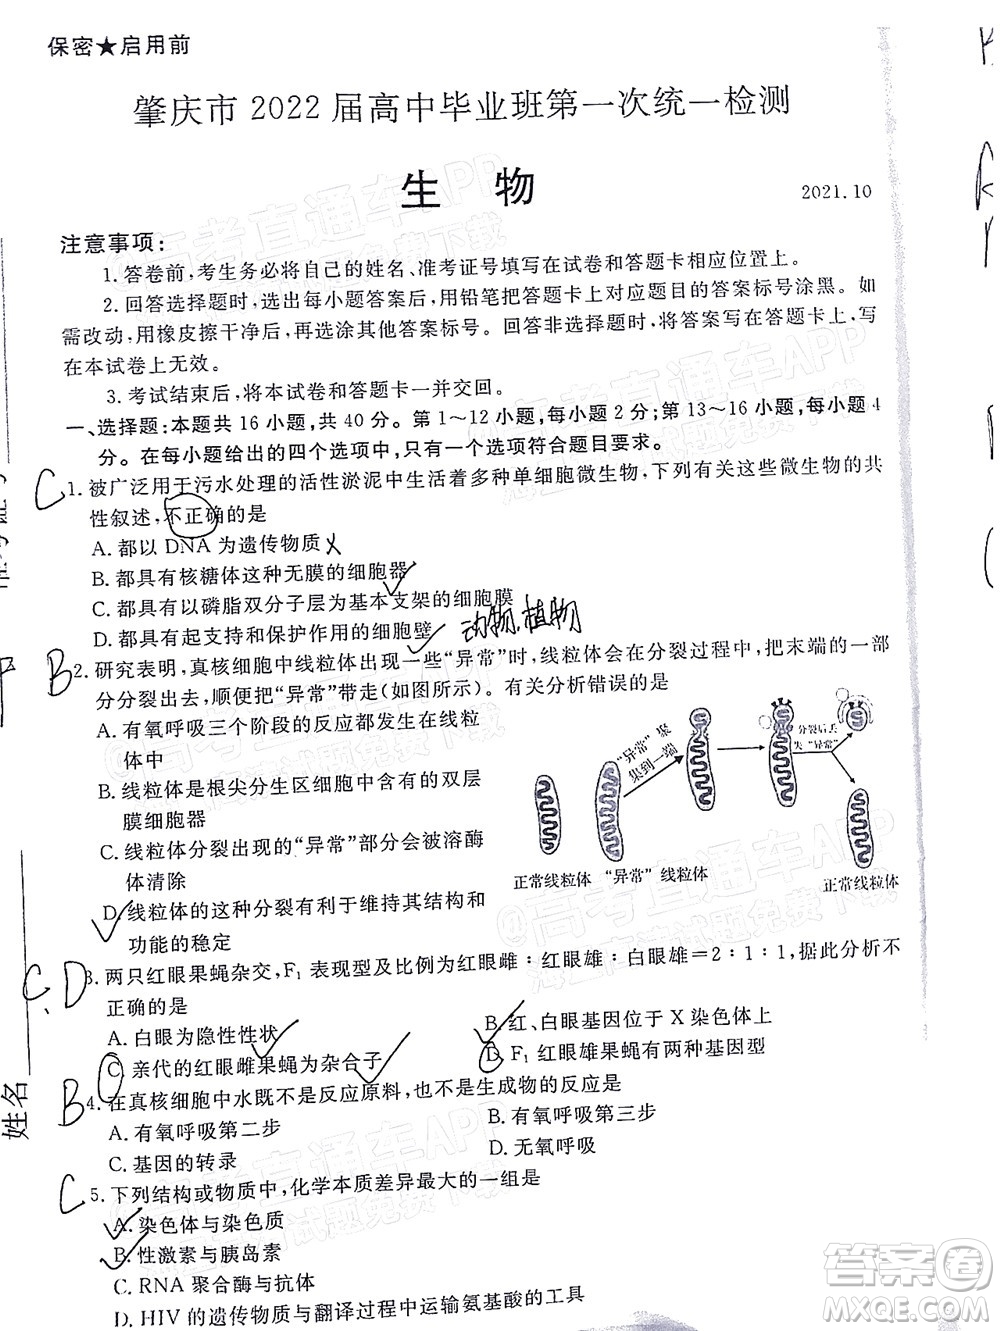 保密★启用前
肇庆市 2022 届高中毕业班第一次统一检测
生 物
2021.10
注意事项:
1. 答卷前,考生务必将自己的姓名、准考证号填写在试卷和答题卡相应位置上。
2. 回答选择题时,选出每小题答案后,用铅笔把答题卡上对应题目的答案标号涂黑。如
需改动,用橡皮擦干净后,再选涂其他答案标号。回答非选择题时,将答案写在答题卡上,写
在本试卷上无效。
3. 考试结束后,将本试卷和答题卡一并交回。
一、选择题:本题共 16 小题,共 40 分。第 1～12 小题,每小题 2 分;第 13～16 小题,每小题 4
分。在每小题给出的四个选项中,只有一个选项符合题目要求。
C
1. 被广泛用于污水处理的活性淤泥中生活着多种单细胞微生物,下列有关这些微生物的共
性叙述,不正确的是
A. 都以 DNA 为遗传物质
B. 都具有核糖体这种无膜的细胞器
C. 都具有以磷脂双分子层为基本支架的细胞膜
D. 都具有起支持和保护作用的细胞壁
动物.植物
B
2. 研究表明,真核细胞中线粒体出现一些“异常”时,线粒体会在分裂过程中,把末端的一部
分分裂出去,顺便把“异常”带走(如图所示)。有关分析错误的是
A. 有氧呼吸三个阶段的反应都发生在线粒
体中
B. 线粒体是根尖分生区细胞中含有的双层
膜细胞器
C. 线粒体分裂出现的“异常”部分会被溶酶
体清除
D. 线粒体的这种分裂有利于维持其结构和
功能的稳定
“异常”聚
集到一端
分裂后丢
失“异常”
正常线粒体 “异常”线粒体
正常线粒体
C、D
3. 两只红眼果蝇杂交,F₁ 表现型及比例为红眼雌∶红眼雄∶白眼雄=2∶1∶1,据此分析不
正确的是
A. 白眼为隐性性状
B. 红、白眼基因位于 X 染色体上
C. 亲代的红眼雌果蝇为杂合子
D. F₁ 红眼雌果蝇有两种基因型
B
4. 在真核细胞中水既不是反应原料,也不是生成物的反应是
A. 有氧呼吸第二步
B. 有氧呼吸第三步
C. 基因的转录
D. 无氧呼吸
C
5. 下列结构或物质中,化学本质差异最大的一组是
A. 染色体与染色质
B. 性激素与胰岛素
C. RNA 聚合酶与抗体
D. HIV 的遗传物质与翻译过程中运输氨基酸的工具
姓名
@高考直通车APP
海量试题免费下载
答案圈
MXQE.COM